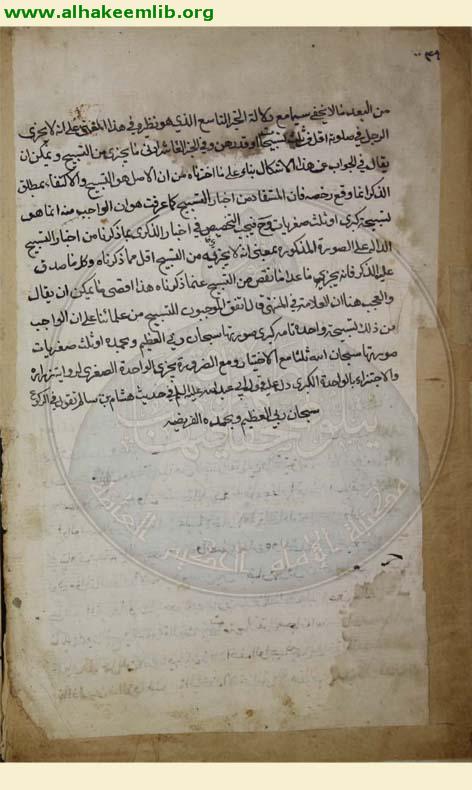 www.alhakeemlib.org
من البعد ما لا يخفى سيما مع دلالة الخبر التاسع الذي هو نظيره في هذا المعنى على انه لا يجزي
الرجل في صلوته اقل من ثلث تسبيحات او قدرهن وفي الخبر العاشر ادنى ما يجزي من التسبيح ويمكن ان
يقال في الجواب عن هذا الاشكال بناء على ما اخترناه من ان الاصل هو التسبيح والاكتفاء بمطلق
الذكر انما وقع رخصة فان المستفاد من اخبار التسبيح كما عرفت هو ان الواجب منه انما هو
تسبيحة كبرى او ثلث صغريات وح فيجب التخصيص في اخبار الذكرى بما ذكرنا من اخبار التسبيح
الدالة على الصورة المذكورة بمعنى انه لا يجزيه من التسبيح اقل مما ذكرناه وكلما صدق
عليه الذكر فانه يجزي ما عدا ما نقص من التسبيح عما ذكرناه هذا اقصى ما يمكن ان يقال
والعجب هنا ان العلامة في المنتهى قال اتفق الموجبون للتسبيح من علمائنا على ان الواجب
من ذلك تسبيحة واحدة تامة كبرى صورتها سبحان ربي العظيم وبحمده او ثلث صغريات
صورتها سبحان الله ثلثا مع الاختيار ومع الضرورة تجزي الواحدة الصغرى
والاجتزاء بالواحدة الكبرى دل عليه قول ابي عبد الله عليه السلام في حديث هشام بن سالم تقول في الركوع
سبحان ربي العظيم وبحمده الفريضة
مكتبة الإمام الحكيم العامة